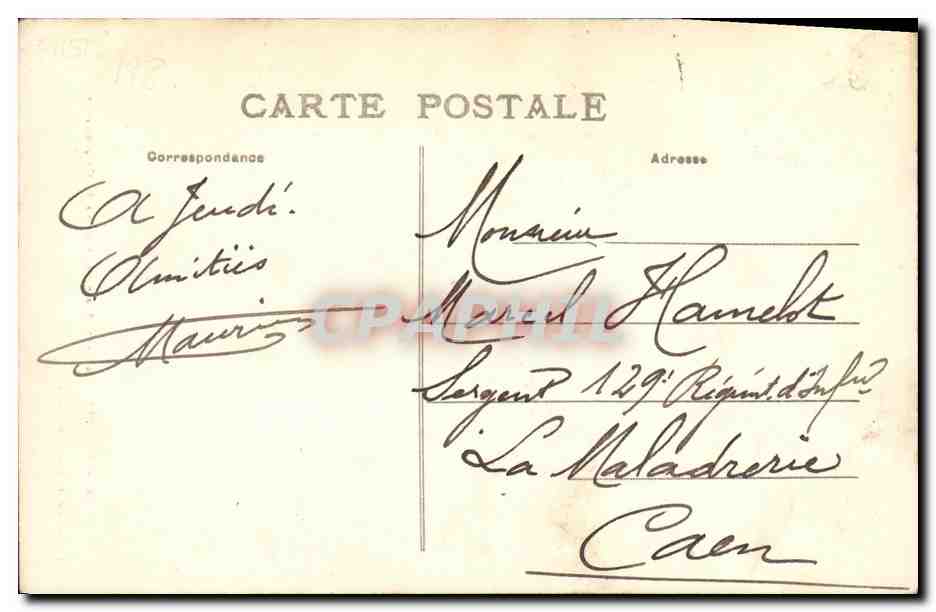 CARTE POSTALE
Correspondance
Adresse
A Jeudi.
Amitiés
Maurice
Monsieur
Marcel Hamelot
Sergent 129e Régimt. d'Infrie
La Maladrerie
Caen
CPAPHIL